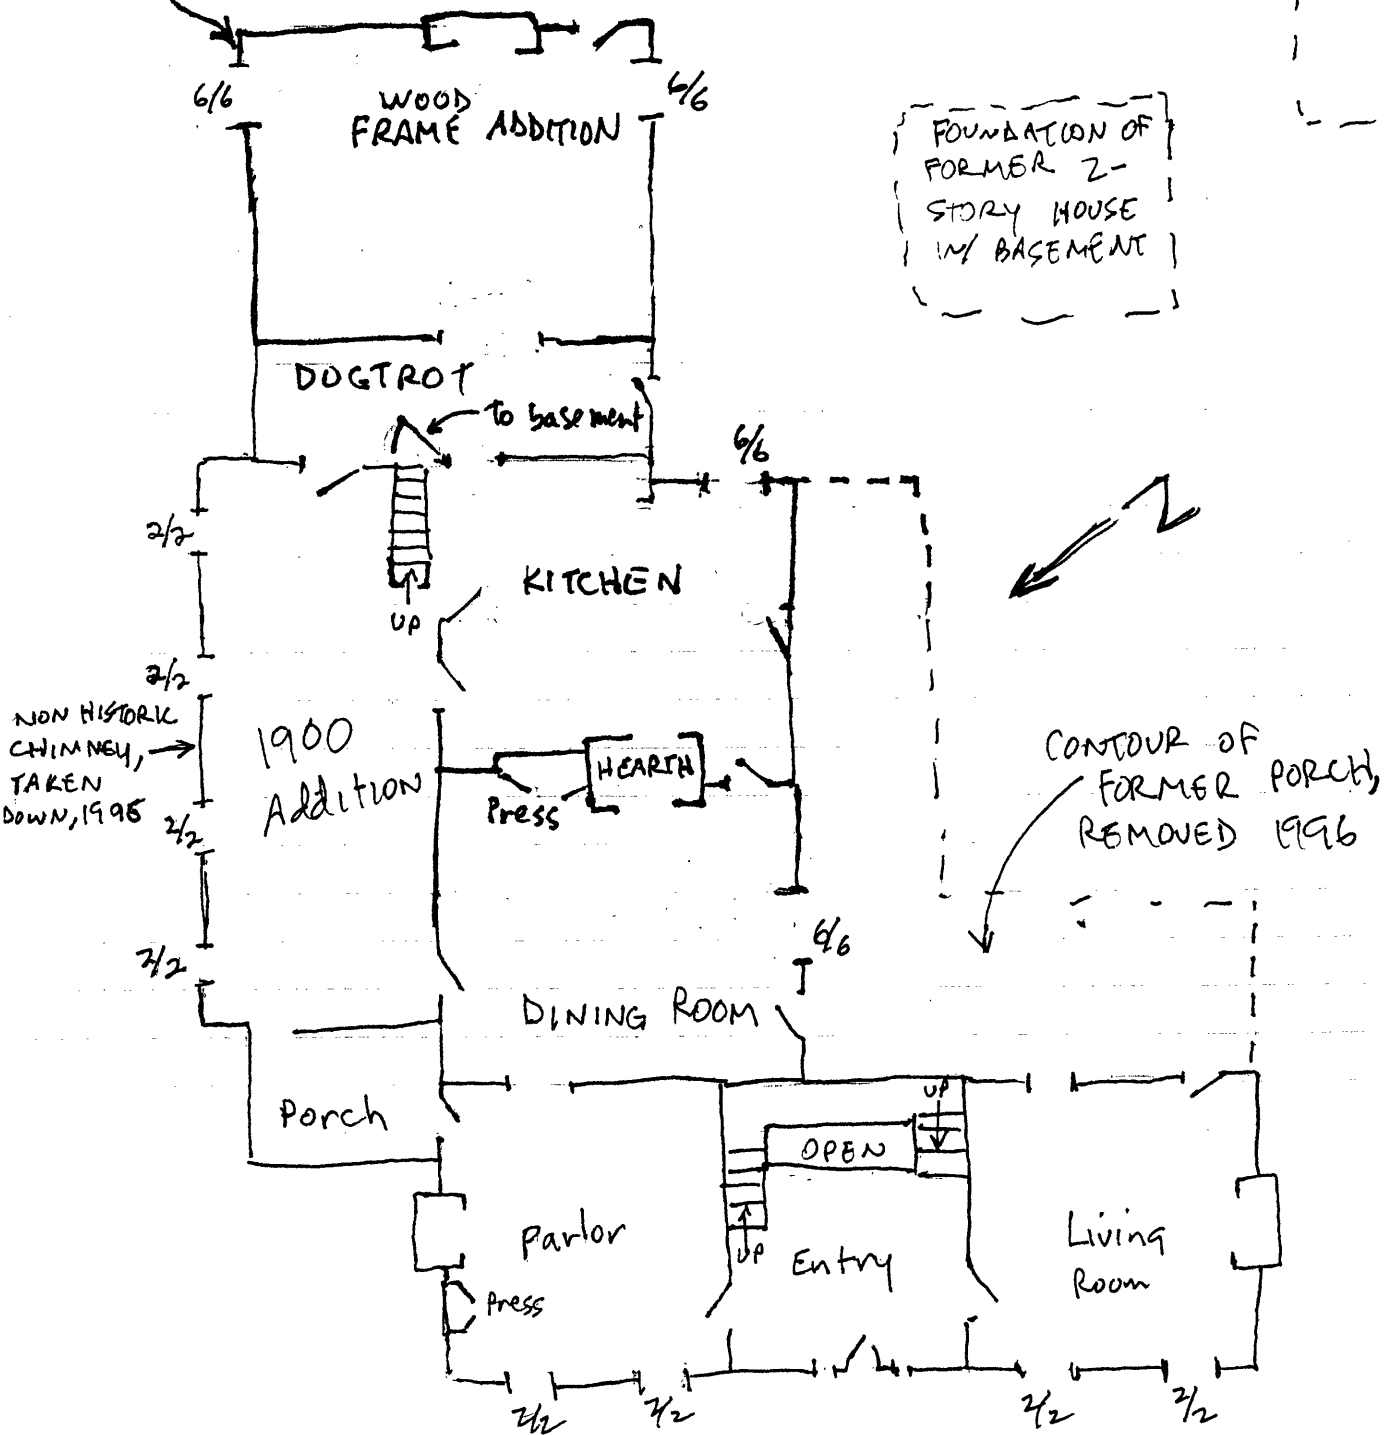 6/6
WOOD
FRAME ADDITION
6/6
FOUNDATION OF
FORMER 2-
STORY HOUSE
W/ BASEMENT
DOGTROT
To basement
6/6
2/2
KITCHEN
UP
2/2
NON HISTORIC
CHIMNEY,
TAKEN
DOWN, 1996
1900
Addition
HEARTH
Press
2/2
CONTOUR OF
FORMER PORCH,
REMOVED 1996
6/6
2/2
DINING ROOM
Porch
UP
OPEN
Parlor
UP
Entry
Living
Room
Press
2/2
2/2
2/2
2/2
N